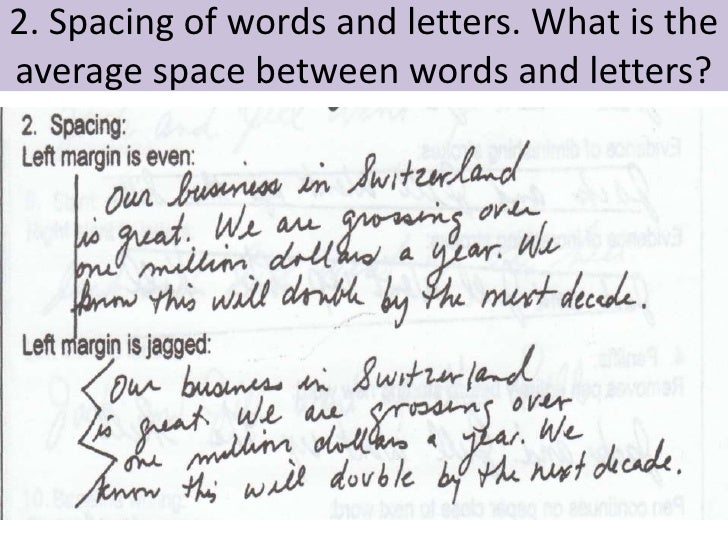 2. Spacing of words and letters. What is the
average space between words and letters?
2. Spacing:
Left margin is even:
Our business in Switzerland
is great. We are grossing over
one million dollars a year. We
know this will double by the next decade.
Left margin is jagged:
Our business in Switzerland
is great We are grossing over
one million dollars a year. We
know this will double by the next decade.